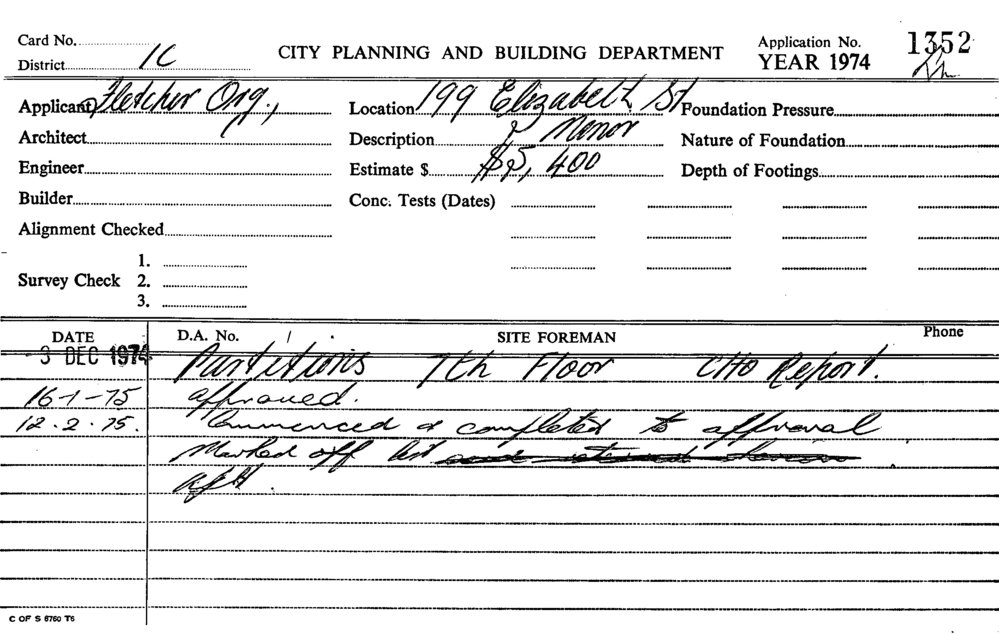 Card No.
District 1C
CITY PLANNING AND BUILDING DEPARTMENT
Application No. 1352
YEAR 1974
Applicant Fletcher Org.,
Location 199 Elizabeth St
Foundation Pressure
Architect
Description Minor
Nature of Foundation
Engineer
Estimate $ $5,400
Depth of Footings
Builder
Conc. Tests (Dates)
Alignment Checked
Survey Check 1.
2.
3.
DATE D.A. No. / SITE FOREMAN Phone
3 DEC 1974 Partitions 7th Floor CHO Report.
16-1-75 approved.
12.2.75. Commenced & completed to approval
Marked off list
C OF S 6760 T6